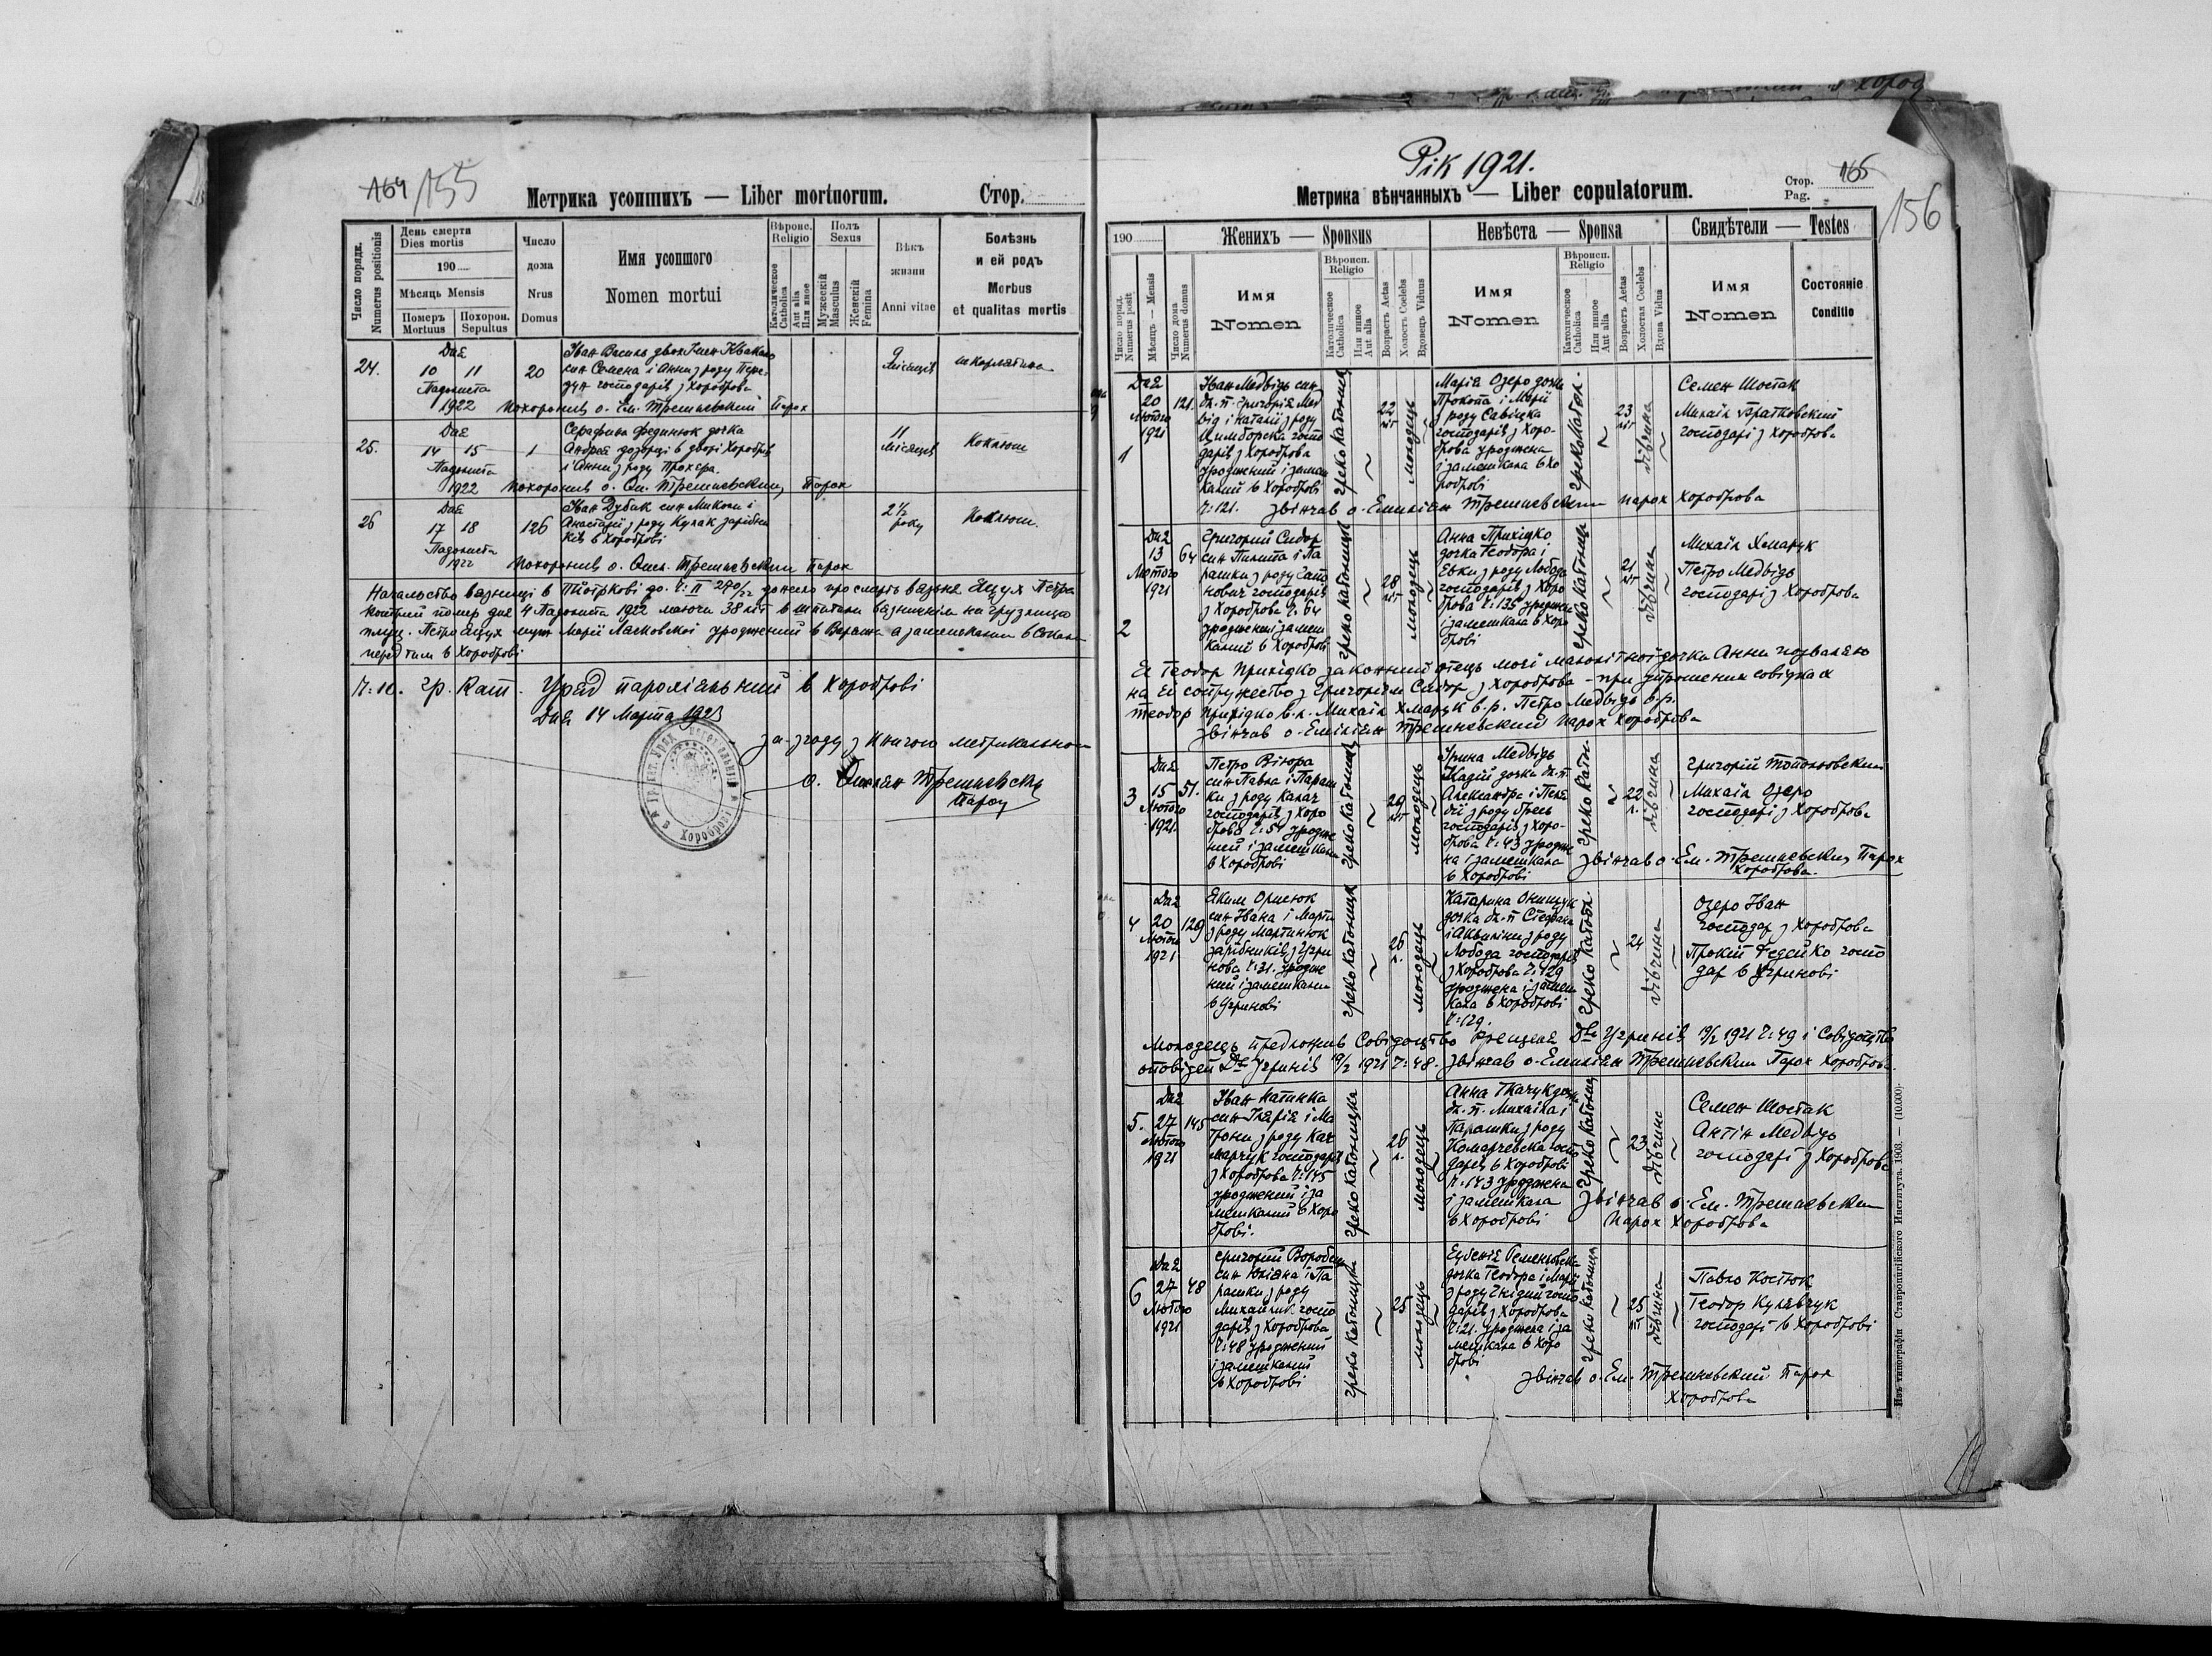 164 155
Метрика усопшихъ — Liber mortuorum. Стор.
Число порядк. Numerus positionis
День смерти
Dies mortis
190
Мѣсяць Mensis
Померъ Mortuus
Похорон. Sepultus
Число дома Nrus Domus
Имя усопшого
Nomen mortui
Вѣроис. Religio
Католическое Catholica
Или иное Aut alia
Полъ Sexus
Мужескій Masculus
Женскій Femina
Вѣкъ жизни Anni vitae
Болѣзнь и ей родъ
Morbus et qualitas mortis
24.
Дня
10 11
Падолиста
1922
20
Іван Василь
син Семена і Анни з роду
господарів з Хороброва
9 місяців
шкарлятина
похоронив о. Ем. Трешневский Парох
25.
Дня
14 15
Падолиста
1922
1
Серафина Фединюк дочка
Андрея в дворі
і Анни з роду
11 місяців
Коклюш
похоронив о. Ем. Трешневский Парох
26
Дня
17 18
Падолиста
1922
126
Іван Дубик син Миколи і
Анастазії з роду Кулак
ків в Хороброві
2½ року
Коклюш.
похоронив о. Емил. Трешневский Парох
Начальство вязниці в до. Ч: II 270/22 донесло про смерть вязня Яцух Петра
котрий помер дня 4 Падолиста 1922 маючи 38 літ в шпитали на грузлицю
Петро Яцух муж МаріїЛасковскої уроджений в а замешкалий в
перед тим в Хороброві
Ч: 10. Гр. Кат. Уряд парохіяльний в Хороброві
Дня 14 Марта 1923
За згоду з книгою метрикальною
о. Омелян Трешневский
Парох
Рік 1921.
Метрика вѣнчанныхъ — Liber copulatorum.
Стор. Pag. 165
156
190
Женихъ — Sponsus
Невѣста — Sponsa
Свидѣтели — Testes
Число поряд. Numerus posit
Мѣсяць — Mensis
Число дома Numerus domus
Имя Nomen
Вѣроисп. Religio
Католическое Catholica
Или иное Aut alia
Возрастъ Aetas
Холостъ Coelebs
Вдовецъ Viduus
Имя Nomen
Вѣроисп. Religio
Католическое Catholica
Или иное Aut alia
Возрастъ Aetas
Холостая Coelebs
Вдова Vidua
Имя Nomen
Состояніе Conditio
1
Дня
20
Лютого
1921
121.
Іван Медвідь син
бл. п. Григорія Мед
від і Наталії з роду
госпо
дарів з Хороброва
уроджений і замеш
калий в Хороброві
Ч: 121.
греко католицке
22 літ
молодець
Марія Озеро дочка
Прокопа і Марії
з роду Савіцка
господарів з Хоро-
брова уроджена
і замешкала в Хо
роброві
греко катол.
23 літ
дівчина
Семен Шостак
Михаіл Братковский
господарі з Хороброва
звінчав о. Емиліян Трешневский парох Хороброва
2
Дня
13
Лютого
1921
64
Григорий Сидор
син Пилипа і Па
рашки з роду Гапо
нович господарів
з Хороброва Ч: 64
уроджений і замеш
калий в Хороброві
греко католицке
28 літ
молодець
Анна Прихідко
дочка Теодора і
Евки з роду Лобода
господарів з Хоро
брова Ч: 135 уроджена
і замешкала в Хоро
брові
греко католиц
21 літ
дівчина
Михаіл Хмарук
Петро Медвідь
господарі з Хороброва
Я Теодор Прихідко законний отець моєї малолітної дочки Анни позваляю
на єї супружество з Григориєм Сидор з Хороброва - при упрошених совідках
Теодор Прихідко в.р. Михаіл Хмарук в.р. Петро Медвідь в.р.
звінчав о. Емиліян Трешневский парох Хороброва
3
Дня
15
Лютого
1921.
51.
Петро Вітюра
син Павла і Параш
ки з роду Калач
господарів з Хоро
брова Ч: 51 уродже
ний і замешкалий
в Хороброві
греко католицке
29 літ
молодець
Ірина Медвідь
дочка бл. п.
Александра і Пела
ґії з роду
господарів з Хоро-
брова Ч: 43 уродже
на і замешкала
в Хороброві
греко катол.
22 л.
дівчина
Григорій Топольовский
Михаіл Озеро
господарі з Хороброва
звінчав о. Ем. Трешневский Парох
Хороброва.
4
Дня
20
Лютого
1921
129
Яким Ориєюк
син Івана і Марти
з роду Мартинюк
зарібників з Угри
нова Ч: 31. уродже
ний і замешкалий
в Угринові
греко католицке
26 л.
молодець
Катарина Онищук
дочка бл. п. Стефана
і Акилини з роду
Лобода господарів
з Хороброва Ч: 129
уроджена і замеш
кала в Хороброві
Ч: 129.
греко катол.
24
дівчина
Озеро Іван
господар з Хороброва
Прокіп Федейко госпо
дар в Угринові
Молодець предложив Совідоцтво Крещеня Дто Угринів 19/2 1921 Ч: 49 і Совідоцтво
оповідей Дто Угринів 19/2 1921 Ч: 48. звінчав о. Емиліян Трешневский Парох Хороброва.
5.
Дня
27
Лютого
1921
145
Іван Калинка
син Ілярія і Ма
з роду Кач
марчук господарів
з Хороброва Ч: 145
уроджений і за
мешкалий в Хоро
брові.
греко католицке
26 л.
молодець
Анна Ткачук дочка
бл. п. Михаіла і
Парашки з роду
Комарчевска госпо
дарів в Хороброві
Ч: 143 уроджена
і замешкала
в Хороброві
греко католиц
23
дівчина
Семен Шостак
Антін Медвідь
господарі з Хороброва
звінчав о. Ем. Трешневский
парох Хороброва
6
Дня
27
Лютого
1921
48
Григорий Воробець
син Юліяна і Па
рашки з роду
госпо
дарів з Хороброва
Ч: 48 уроджений
і замешкалий
в Хороброві
греко католицке
25
молодець
Евгенія
дочка Теодора і Марії
з роду госпо
дарів з Хороброва
Ч: 21. уроджена і за
мешкала в Хоро
брові
греко католицка
25 літ
дівчина
Павло Костюк
Теодор Кулявчук
господарі в Хороброві
звінчав о. Ем. Трешневский Парох
Хороброва
Изъ типографіи Ставропигійского Института. 1903. — (10.000).